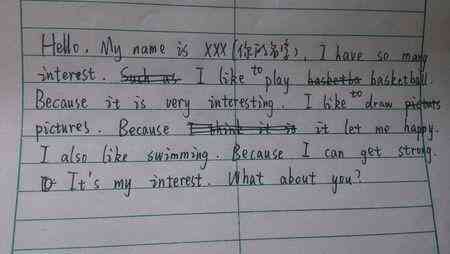 Hello. My name is XXX (你的名字). I have so many
interest. Such as I like to play basketba basketball.
Because it is very interesting. I like to draw pictuts
pictures. Because I think it is it let me happy.
I also like swimming. Because I can get strong.
It's my interest. What about you?